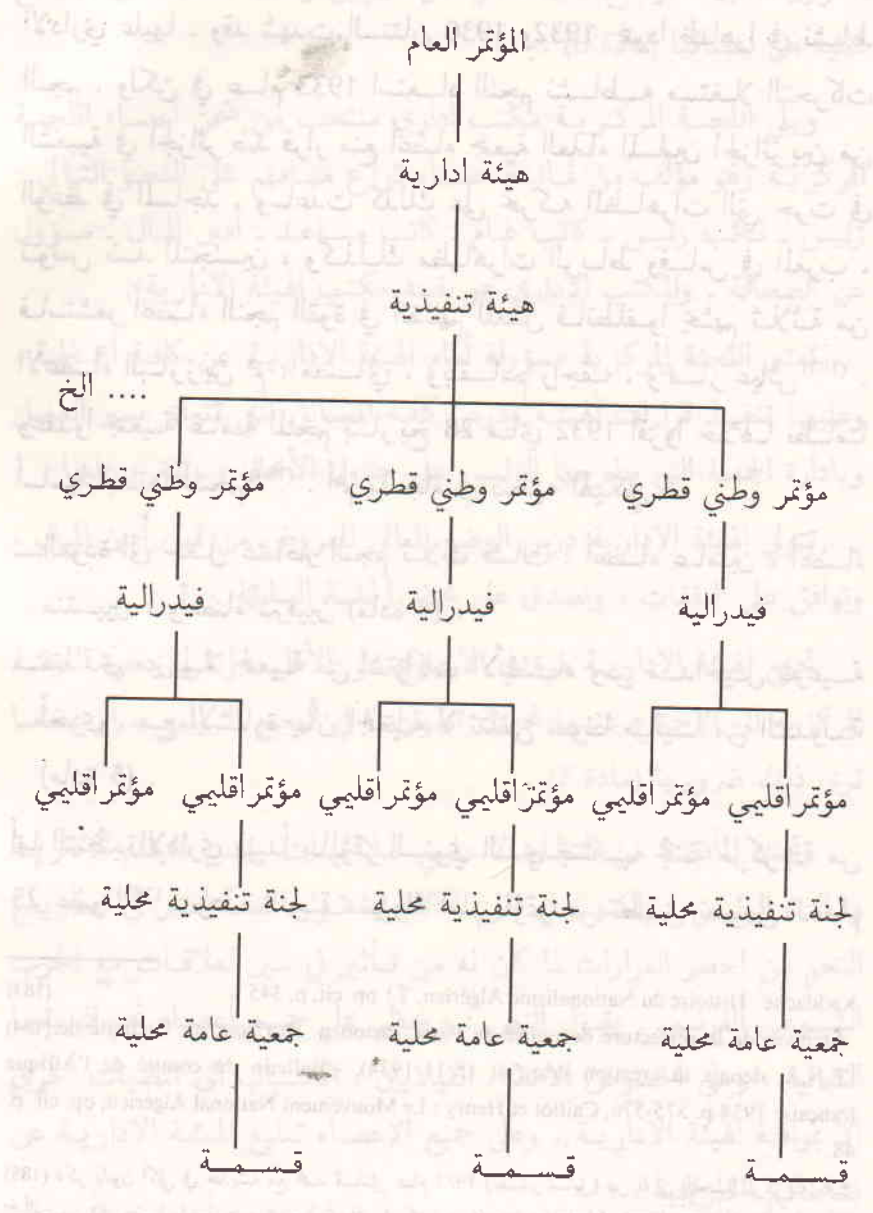 المؤتمر العام
هيئة ادارية
هيئة تنفيذية
.... الخ
مؤتمر وطني قطري مؤتمر وطني قطري مؤتمر وطني قطري
فيدرالية فيدرالية فيدرالية
مؤتمر اقليمي مؤتمر اقليمي مؤتمر اقليمي مؤتمر اقليمي مؤتمر اقليمي مؤتمر اقليمي
لجنة تنفيذية محلية لجنة تنفيذية محلية لجنة تنفيذية محلية
جمعية عامة محلية جمعية عامة محلية جمعية عامة محلية
قسمة قسمة قسمة